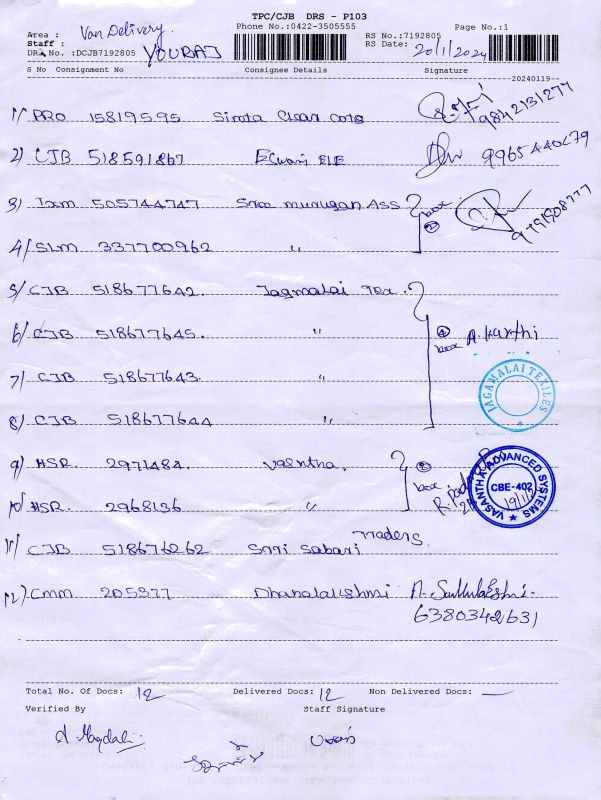 TPC/CJB DRS - P103
Phone No.:0422-3505555 Page No.:1
Area : Van Delivery
Staff : RS No.:7192805
DRS No.:DCJB7192805 YOURAJ RS Date: 20/1/2024
S No Consignment No Consignee Details Signature
20240119
1) PRO 15819595 Sirota Clear Cots 9842131277
2) CJB 518591867 ELE
3) Txm 505744747 Sree murugan Ass box 2
4) SLM 337700962 "
5) CJB 518677642. Jagmalai Tex.
6) CJB 518677645. " 4 box A. Karthi
7) CJB 518677643. "
JAGAMALAI TEXTILES
8) CJB 518677644 "
9) HSR. 2971484. Vasntha. 2 box
VASANTHA ADVANCED SYSTEMS CBE-402
10) HSR. 2968136 "
11) CJB 518676262 Snri Sabari Traders
12) CMM 205377 Dhanalakshmi
6380342631
Total No. Of Docs: 12 Delivered Docs: 12 Non Delivered Docs: —
Verified By Staff Signature